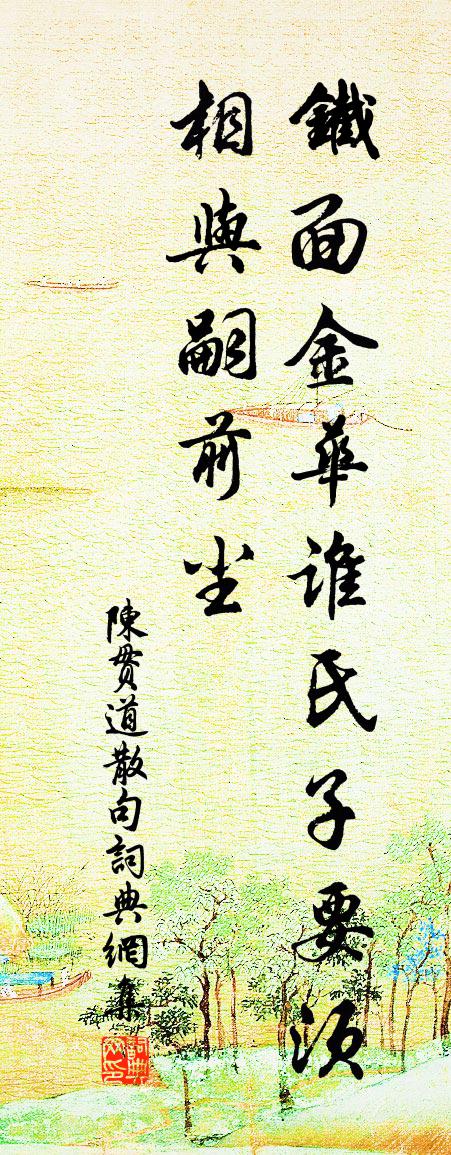 鐵面金華誰氏子要須
相與嗣前塵
陳貫道散句詞典網集